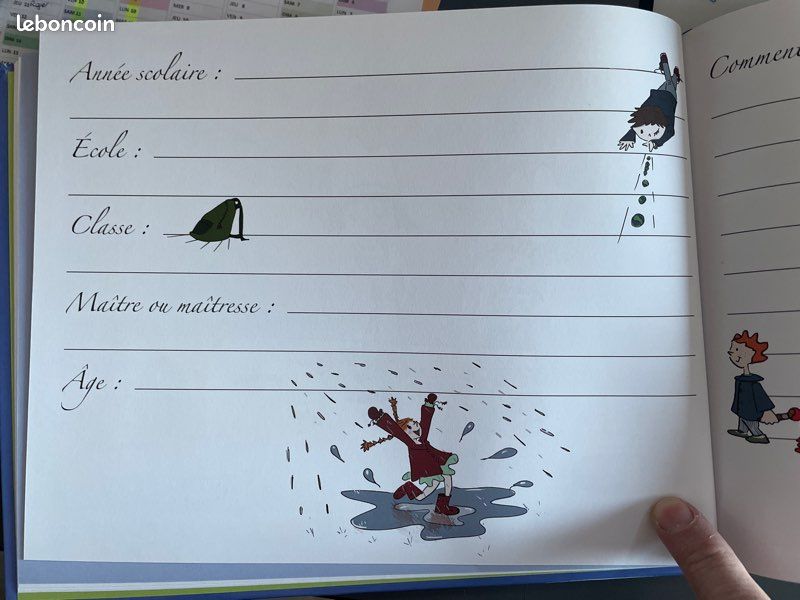 leboncoin
Année scolaire :
École :
Classe :
Maître ou maîtresse :
Âge :